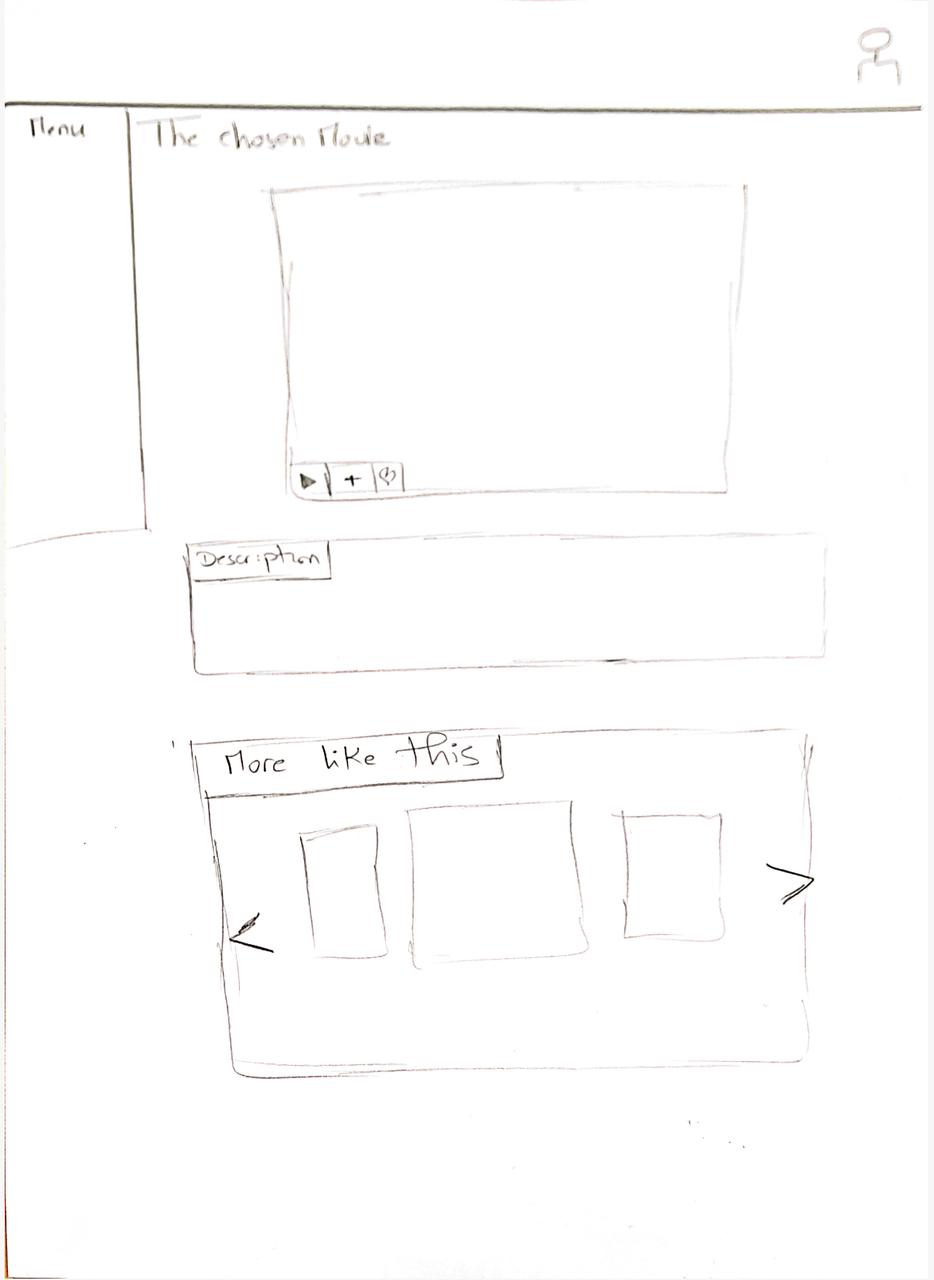 Menu
The chosen Movie
+
Description
More like this
< >